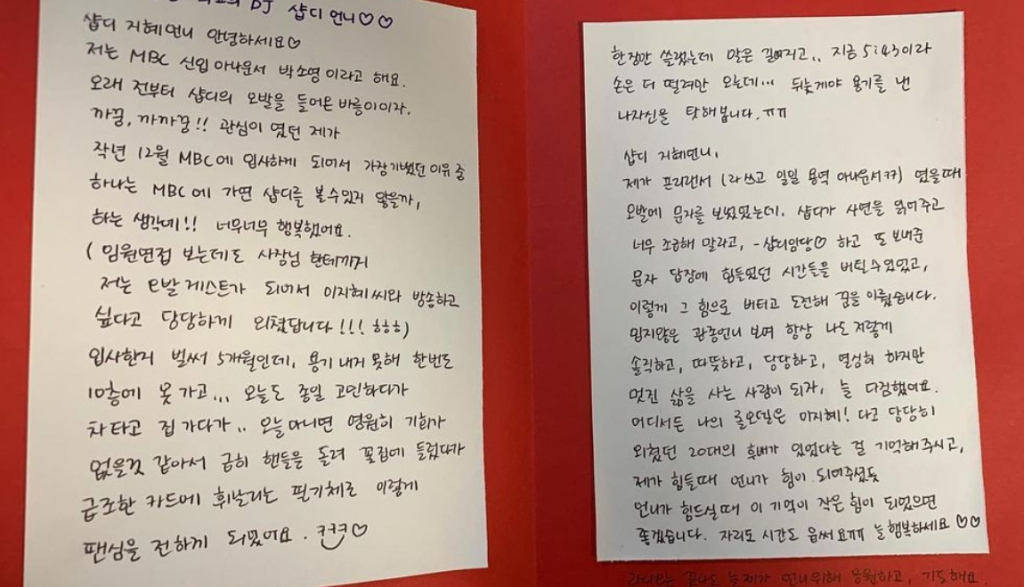 DJ 샵디 언니♡♡
샵디 지혜언니 안녕하세요♡
저는 MBC 신입 아나운서 박소영이라고 해요.
오래 전부터 샵디의 오발을 들어온 바름이이자.
까꿍, 까까꿍!! 관심이 였던 제가
작년 12월 MBC에 입사하게 되어서 가장기뻤던 이유 중
하나는 MBC에 가면 샵디를 볼수있지 않을까,
하는 생각에!! 너무너무 행복했어요.
(임원면접 보는데도 사장님 한테까지
저는 오발 게스트가 되어서 이지혜씨와 방송하고
싶다고 당당하게 외쳤답니다!!! ㅎㅎㅎ)
입사한지 벌써 5개월인데, 용기 내지 못해 한번도
10층에 못 가고,,, 오늘도 종일 고민하다가
차타고 집 가다가.. 오늘아니면 영원히 기회가
없을것 같아서 급히 핸들을 돌려 꽃집에 들렀다가
급조한 카드에 휘날리는 필기체로 이렇게
팬심을 전하게 되었어요. ㅋㅋㅋ♡
한장만 쓸랬는데 말은 길어지고.. 지금 5:43이라
손은 더 떨려만 오는데... 뒤늦게야 용기를 낸
나자신을 탓해봅니다.ㅠㅠ
샵디 지혜언니,
제가 프리랜서 (라쓰고 일일 용역 아나운서ㅋㅋ) 였을때
오발에 문자를 보냈었는데. 샵디가 사연을 읽어주고
너무 조급해 말라고, -샵디임당♡ 하고 또 보내준
문자 답장에 힘들었던 시간들을 버틸수있었고,
이렇게 그 힘으로 버티고 도전해 꿈을 이뤘습니다.
밉지않은 관종언니 보며 항상 나도 저렇게
솔직하고, 따뜻하고, 당당하고, 열심히 하지만
멋진 삶을 사는 사람이 되자, 늘 다짐했어요.
어디서든 나의 롤모델은 이지혜! 다고 당당히
외쳤던 20대의 후배가 있었다는 걸 기억해주시고,
제가 힘들때 언니가 힘이 되어주셨듯
언니가 힘드실때 이 기억이 작은 힘이 되었으면
좋겠습니다. 자리도 시간도 읍써요ㅠㅠ 늘 행복하세요♡♡
라디오는 끝나도 늘 제가 언니위해 응원하고, 기도해요